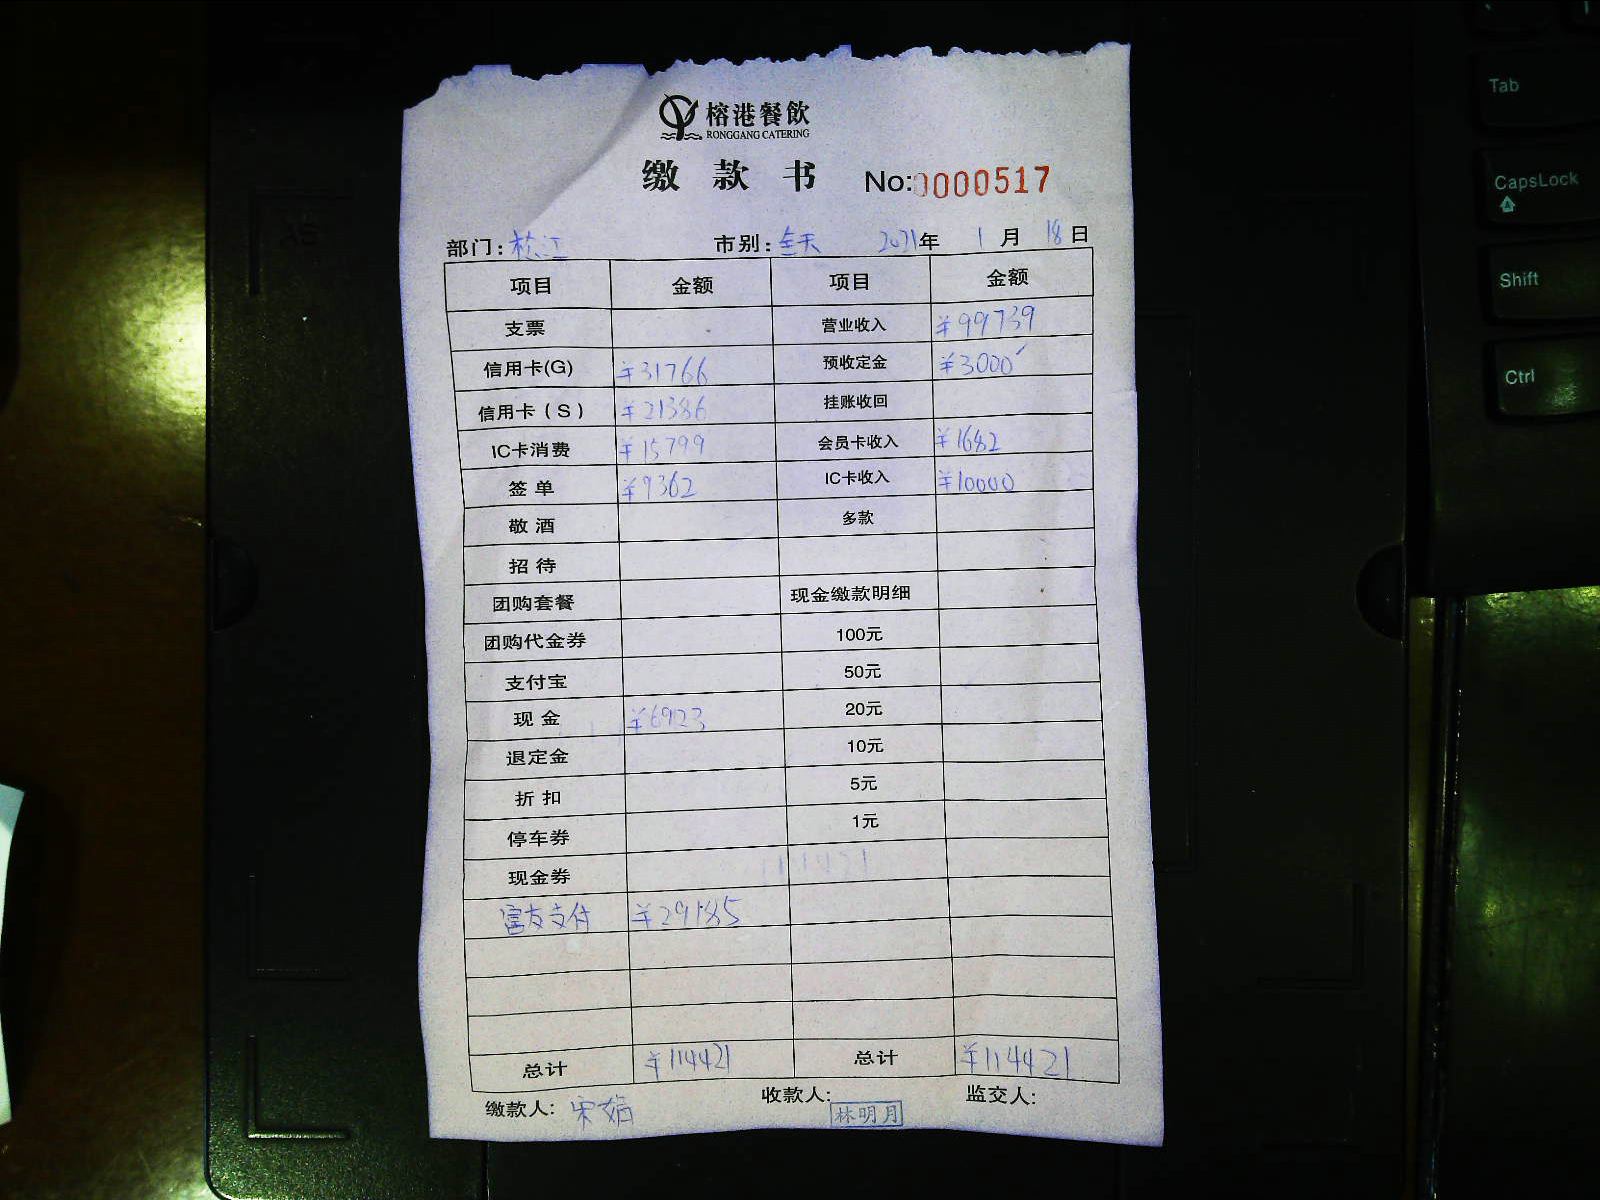 榕港餐飲
RONGGANG CATERING
缴款书 No:0000517
部门:枝江 市别:全天 2021年 1月 18日
项目 金额 项目 金额
支票 营业收入 ¥99739
信用卡(G) ¥31766 预收定金 ¥3000
信用卡(S) ¥21386 挂账收回
IC卡消费 ¥15799 会员卡收入 ¥1682
签单 ¥9362 IC卡收入 ¥10000
敬酒 多款
招待
团购套餐 现金缴款明细
团购代金券 100元
支付宝 50元
现金 ¥6923 20元
退定金 10元
折扣 5元
停车券 1元
现金券
富友支付 ¥29185
总计 ¥114421 总计 ¥114421
缴款人:宋娟 收款人:林明月 监交人:
Tab
CapsLock
Shift
Ctrl